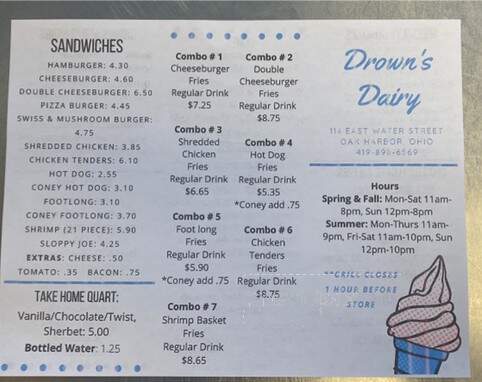 SANDWICHES
HAMBURGER: 4.30
CHEESEBURGER: 4.60
DOUBLE CHEESEBURGER: 6.50
PIZZA BURGER: 4.45
SWISS & MUSHROOM BURGER:
4.75
SHREDDED CHICKEN: 3.85
CHICKEN TENDERS: 6.10
HOT DOG: 2.55
CONEY HOT DOG: 3.10
FOOTLONG: 3.10
CONEY FOOTLONG: 3.70
SHRIMP (21 PIECE): 5.90
SLOPPY JOE: 4.25
EXTRAS: CHEESE: .50
TOMATO: .35 BACON: .75
TAKE HOME QUART:
Vanilla/Chocolate/Twist,
Sherbet: 5.00
Bottled Water: 1.25
Combo # 1
Cheeseburger
Fries
Regular Drink
$7.25
Combo # 2
Double
Cheeseburger
Fries
Regular Drink
$8.75
Combo # 3
Shredded
Chicken
Fries
Regular Drink
$6.65
Combo # 4
Hot Dog
Fries
Regular Drink
$5.35
*Coney add .75
Combo # 5
Foot long
Fries
Regular Drink
$5.90
*Coney add .75
Combo # 6
Chicken
Tenders
Fries
Regular Drink
$8.75
Combo # 7
Shrimp Basket
Fries
Regular Drink
$8.65
Drown's
Dairy
116 EAST WATER STREET
OAK HARBOR, OHIO
419-898-6569
Hours
Spring & Fall: Mon-Sat 11am-
8pm, Sun 12pm-8pm
Summer: Mon-Thurs 11am-
9pm, Fri-Sat 11am-10pm, Sun
12pm-10pm
**GRILL CLOSES
1 HOUR BEFORE
STORE